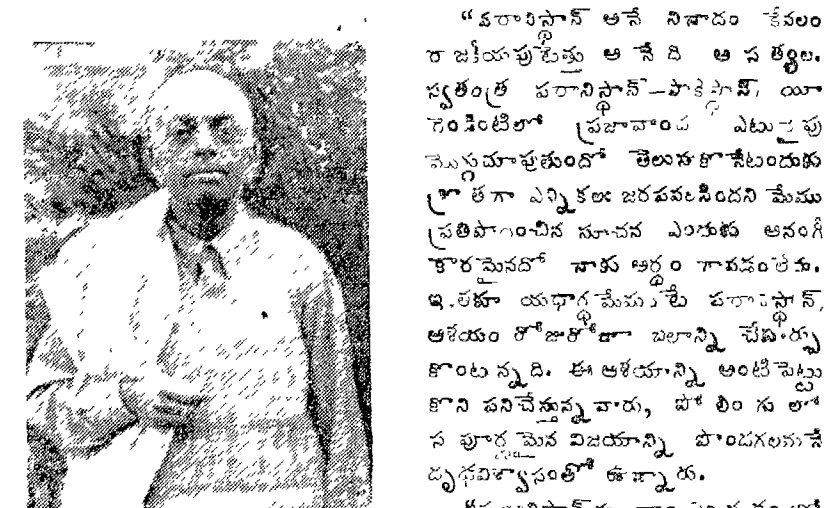 “పఠానిస్థాన్ అనే నినాదం కేవలం
రాజకీయపుటెత్తు అ నే ది అ స త్యం.
స్వతంత్ర పఠానిస్థాన్—పాకిస్థాన్, యీ
రెండింటిలో ప్రజావాంఛ ఎటువైపు
మొగ్గుచూపుతుందో తెలుసుకొనేటందుకు
క్రొ త్తగా ఎన్నికలు జరపవలసిందని మేము
ప్రతిపాదించిన సూచన ఎందుకు అనంగీ
కారమైనదో నాకు అర్థం గావడంలేదు.
ఇంతకూ యథార్థమేమంటే పఠానిస్థాన్,
ఆశయం రోజురోజూ బలాన్ని చేకూర్చు
కొంటున్నది. ఈ ఆశయాన్ని అంటిపెట్టు
కొని పనిచేస్తున్న వారు, పో లిం గు లో
సంపూర్ణమైన విజయాన్ని పొందగలమనే
దృఢవిశ్వాసంతో ఉన్నారు.